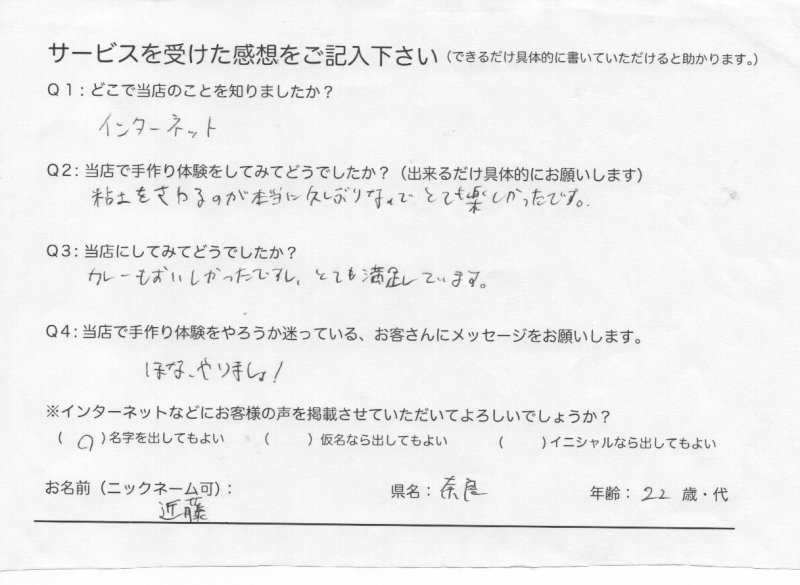 サービスを受けた感想をご記入下さい（できるだけ具体的に書いていただけると助かります。）
Q1：どこで当店のことを知りましたか？
インターネット
Q2：当店で手作り体験をしてみてどうでしたか？（出来るだけ具体的にお願いします）
粘土をさわるのが本当に久しぶりなんで とても楽しかったです。
Q3：当店にしてみてどうでしたか？
カレーもおいしかったですし、とても満足しています。
Q4：当店で手作り体験をやろうか迷っている、お客さんにメッセージをお願いします。
ほな、やりましょ！
※インターネットなどにお客様の声を掲載させていただいてよろしいでしょうか？
（ ○ ）名字を出してもよい （ ）仮名なら出してもよい （ ）イニシャルなら出してもよい
お名前（ニックネーム可）： 県名：奈良 年齢：22 歳・代
近藤